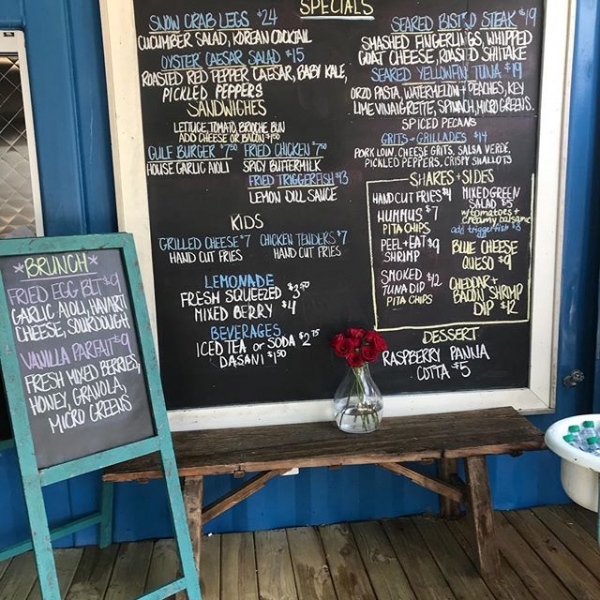 SPECIALS
SNOW CRAB LEGS $24
CUCUMBER SALAD, KOREAN COCKTAIL
OYSTER CAESAR SALAD $15
ROASTED RED PEPPER CAESAR, BABY KALE,
PICKLED PEPPERS
SANDWICHES
LETTUCE, TOMATO, BRIOCHE BUN
AND CHEESE OR BACON
GULF BURGER $7.50
HOUSE GARLIC AIOLI
FRIED CHICKEN $7.50
SPICY BUTTERMILK
FRIED TRIGGERFISH $13
LEMON DILL SAUCE
KIDS
GRILLED CHEESE $7
HAND CUT FRIES
CHICKEN TENDERS $7
HAND CUT FRIES
LEMONADE
FRESH SQUEEZED $3.50
MIXED BERRY $4
BEVERAGES
ICED TEA or SODA $2.75
DASANI $1.50
SEARED BISTRO STEAK $19
SMASHED FINGERLINGS, WHIPPED
GOAT CHEESE, ROASTED SHIITAKE
SEARED YELLOWFIN TUNA $19
ORZO PASTA, WATERMELON + PEACHES, KEY
LIME VINAIGRETTE, SPINACH, MICRO GREENS.
SPICED PECANS
GRITS + GRILLADES $14
PORK LOIN, CHEESE GRITS, SALSA VERDE,
PICKLED PEPPERS, CRISPY SHALLOTS
SHAKES + SIDES
HAND CUT FRIES $4
HUMMUS $7
PITA CHIPS
PEEL + EAT $9
SHRIMP
SMOKED $12
TUNA DIP
PITA CHIPS
MIXED GREEN
SALAD $5
w/ tomatoes +
creamy balsamic
add triggerfish $8
BLUE CHEESE
QUESO $9
CHEDDAR +
BACON SHRIMP
DIP $12
DESSERT
RASPBERRY PANNA
COTTA $5
*BRUNCH*
FRIED EGG BLT $9
GARLIC AIOLI, HAVARTI
CHEESE, SOURDOUGH
VANILLA PARFAIT $9
FRESH MIXED BERRIES,
HONEY, GRANOLA,
MICRO GREENS